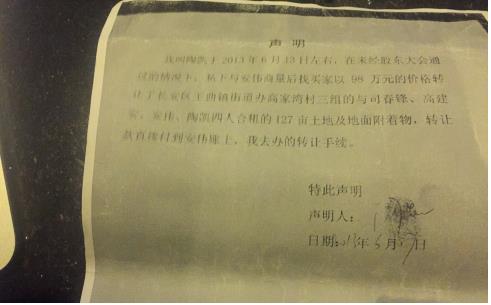 声明
我叫陶凯于2013年6月13日左右，在未经股东大会通
过的情况下，私下与安伟商量后找买家以 98 万元的价格转
让了长安区王曲镇街道办高家湾村三组的与司春锋、高建
安、安伟、陶凯四人合租的127亩土地及地面附着物，转让
款直接付到安伟账上，我去办的转让手续。
特此声明
声明人：
日期：2013年6月 日